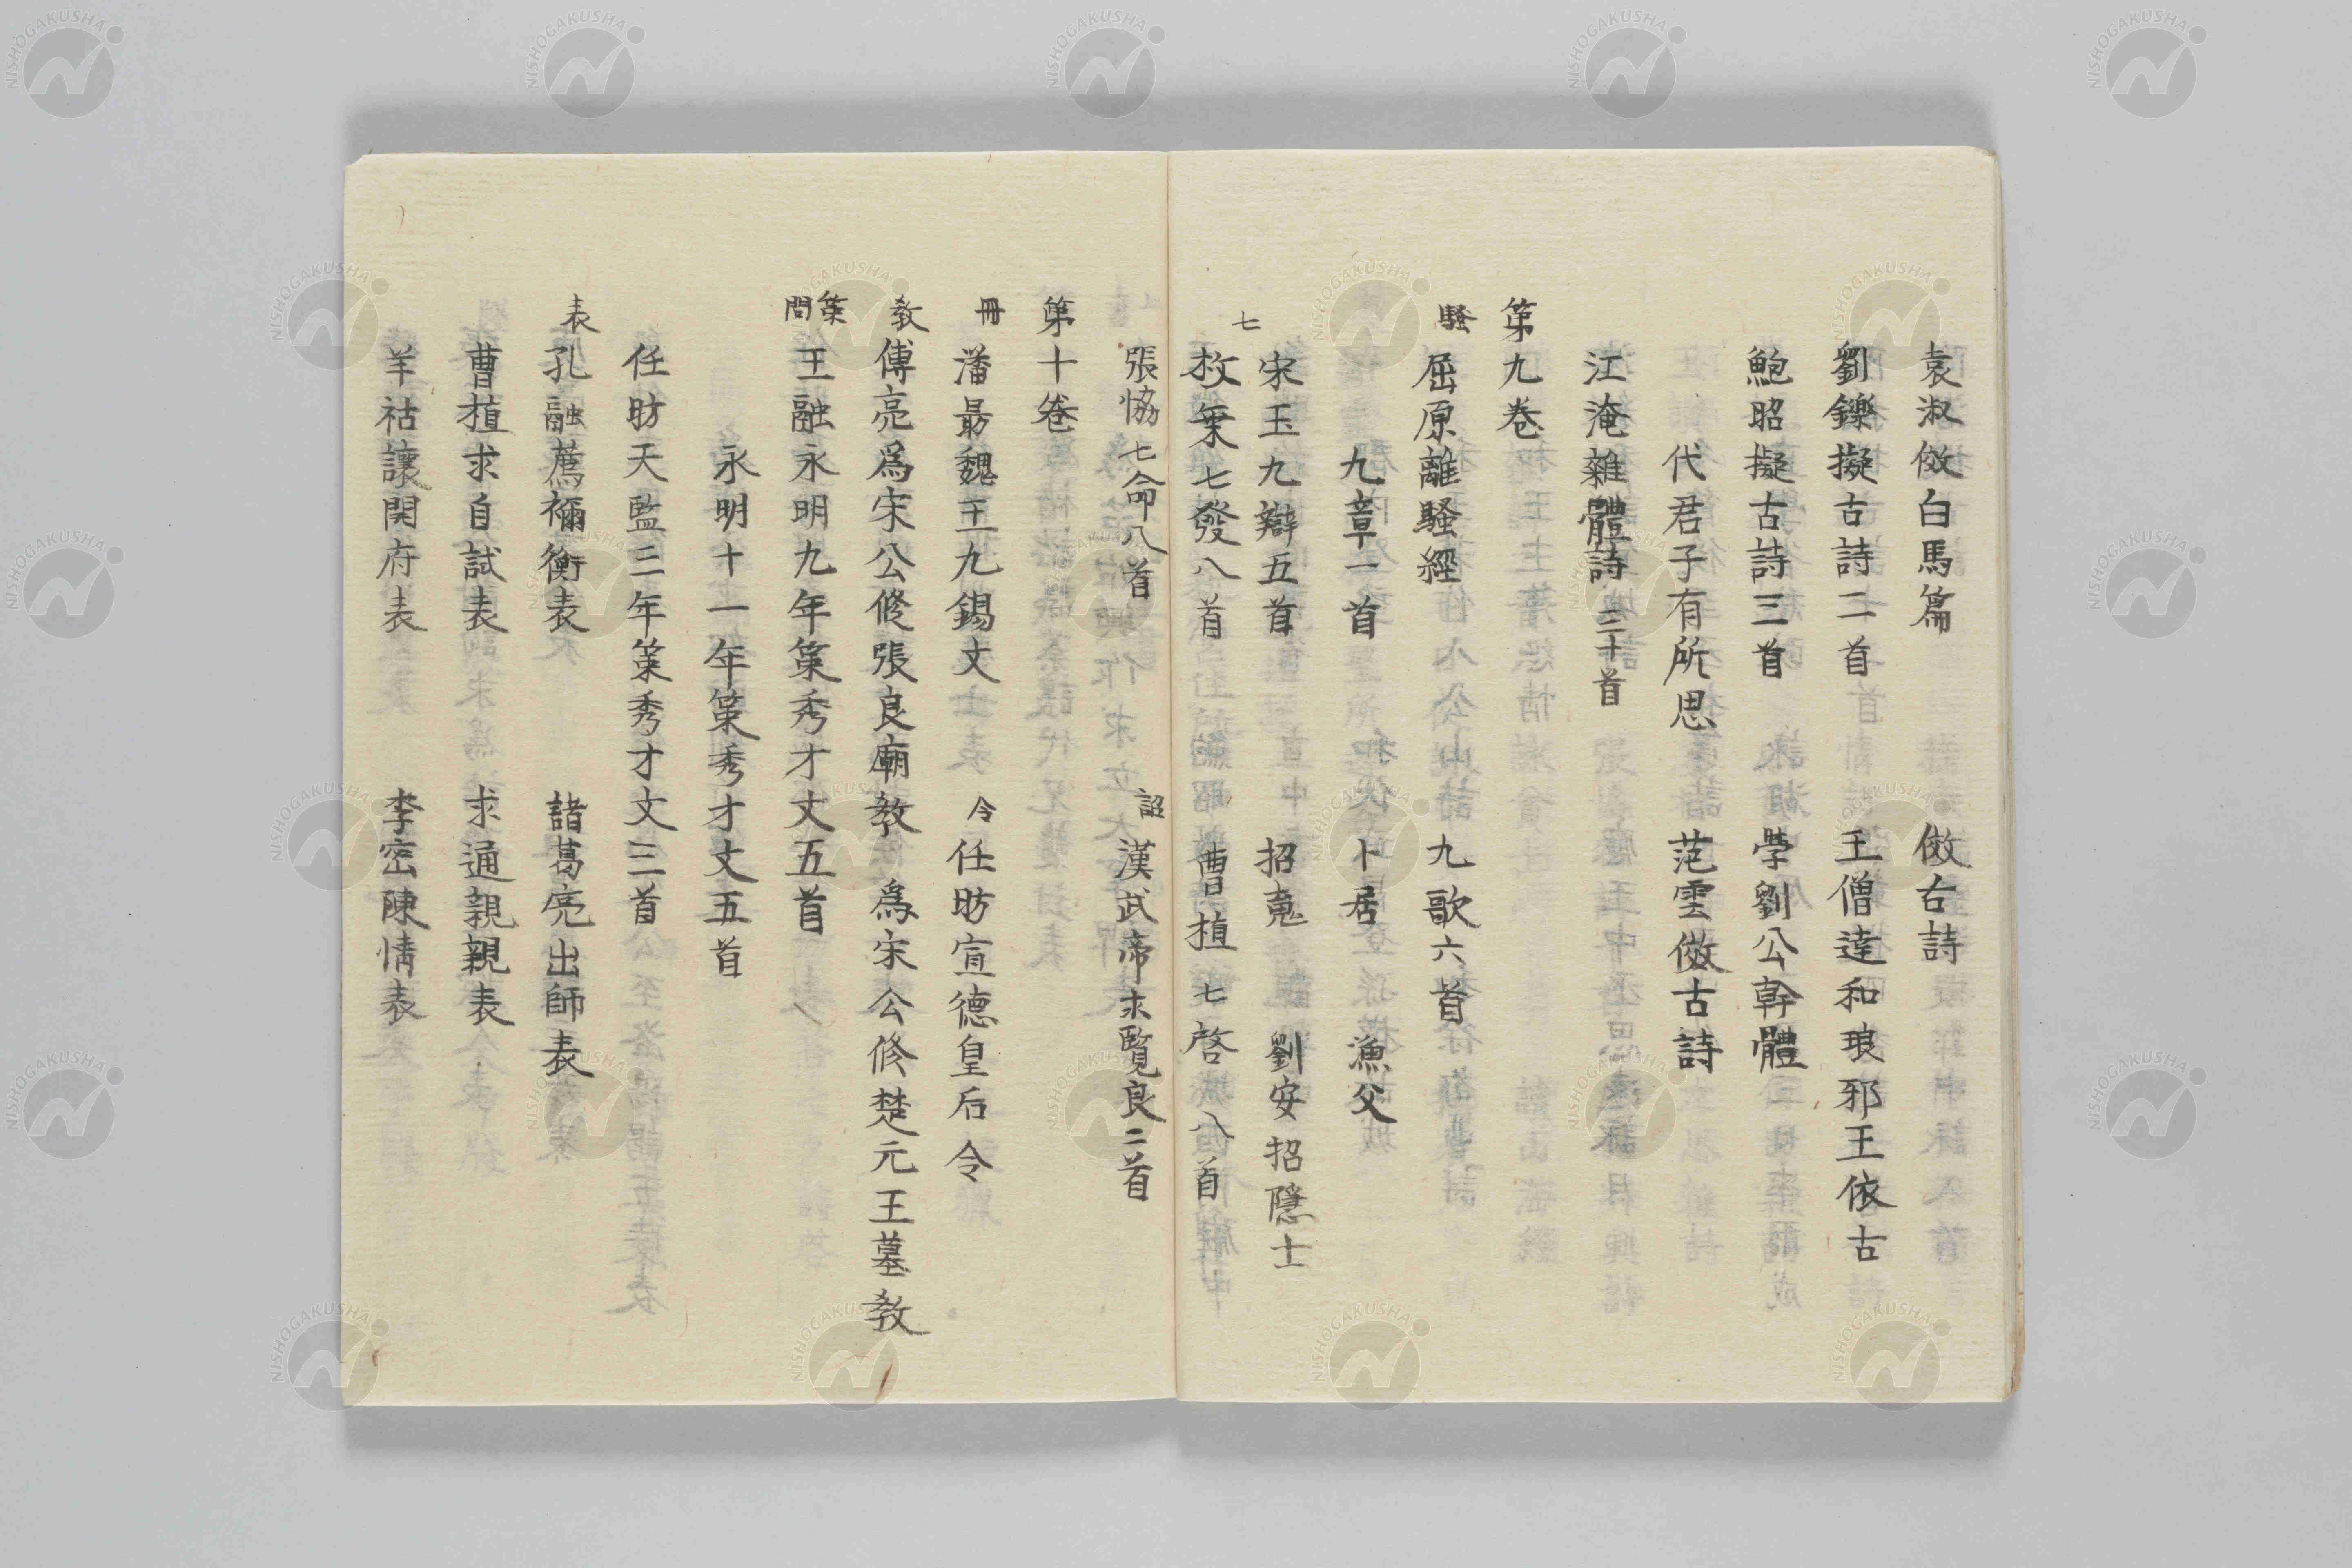 袁淑倣白馬篇　倣古詩
劉鑠擬古詩二首　王僧達和琅邪王依古
鮑昭擬古詩三首　學劉公幹體
代君子有所思　范雲倣古詩
江淹雜體詩三十首
第九卷
騷　屈原離騷經　九歌六首
九章一首　卜居　漁父
宋玉九辯五首　招䰟　劉安招隱士
七　枚乗七發八首　曹植七啓八首
張協七命八首　詔　漢武帝求覽良二首
第十卷
冊　潘勗魏王九錫文　令　任昉宣德皇后令
教　傅亮爲宋公修張良廟教　爲宋公修楚元王墓教
策問　王融永明九年策秀才文五首
永明十一年策秀才文五首
任昉天監三年策秀才文三首
表　孔融薦禰衡表　諸葛亮出師表
曹植求自試表　求通親親表
羊祜讓開府表　李密陳情表
NISHOGAKUSHA